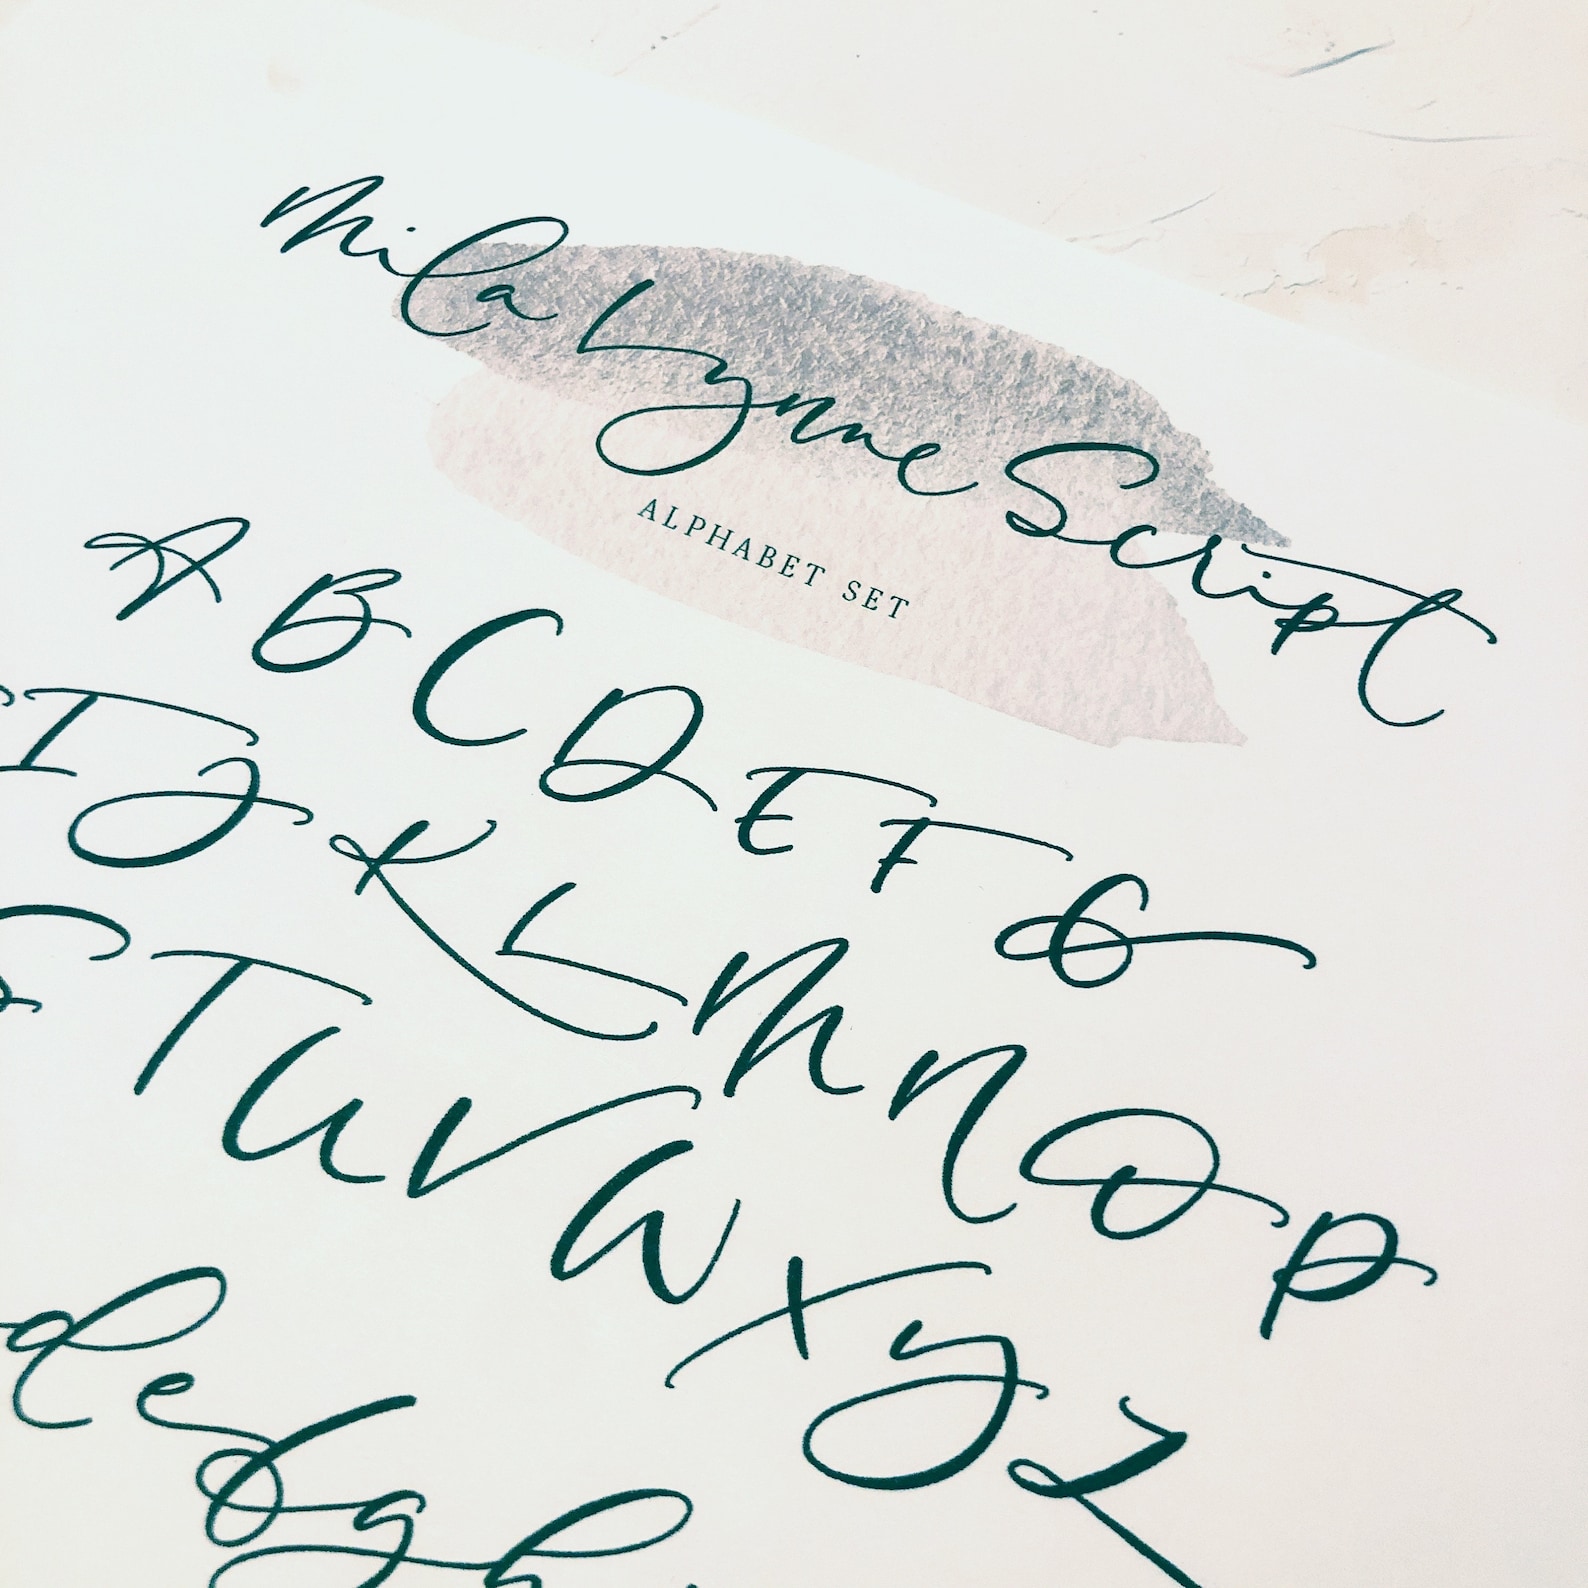 Mila Lynne Script
ALPHABET SET
A B C D E F G
I J K L M N O P
S T U V W X Y Z
d e f g h